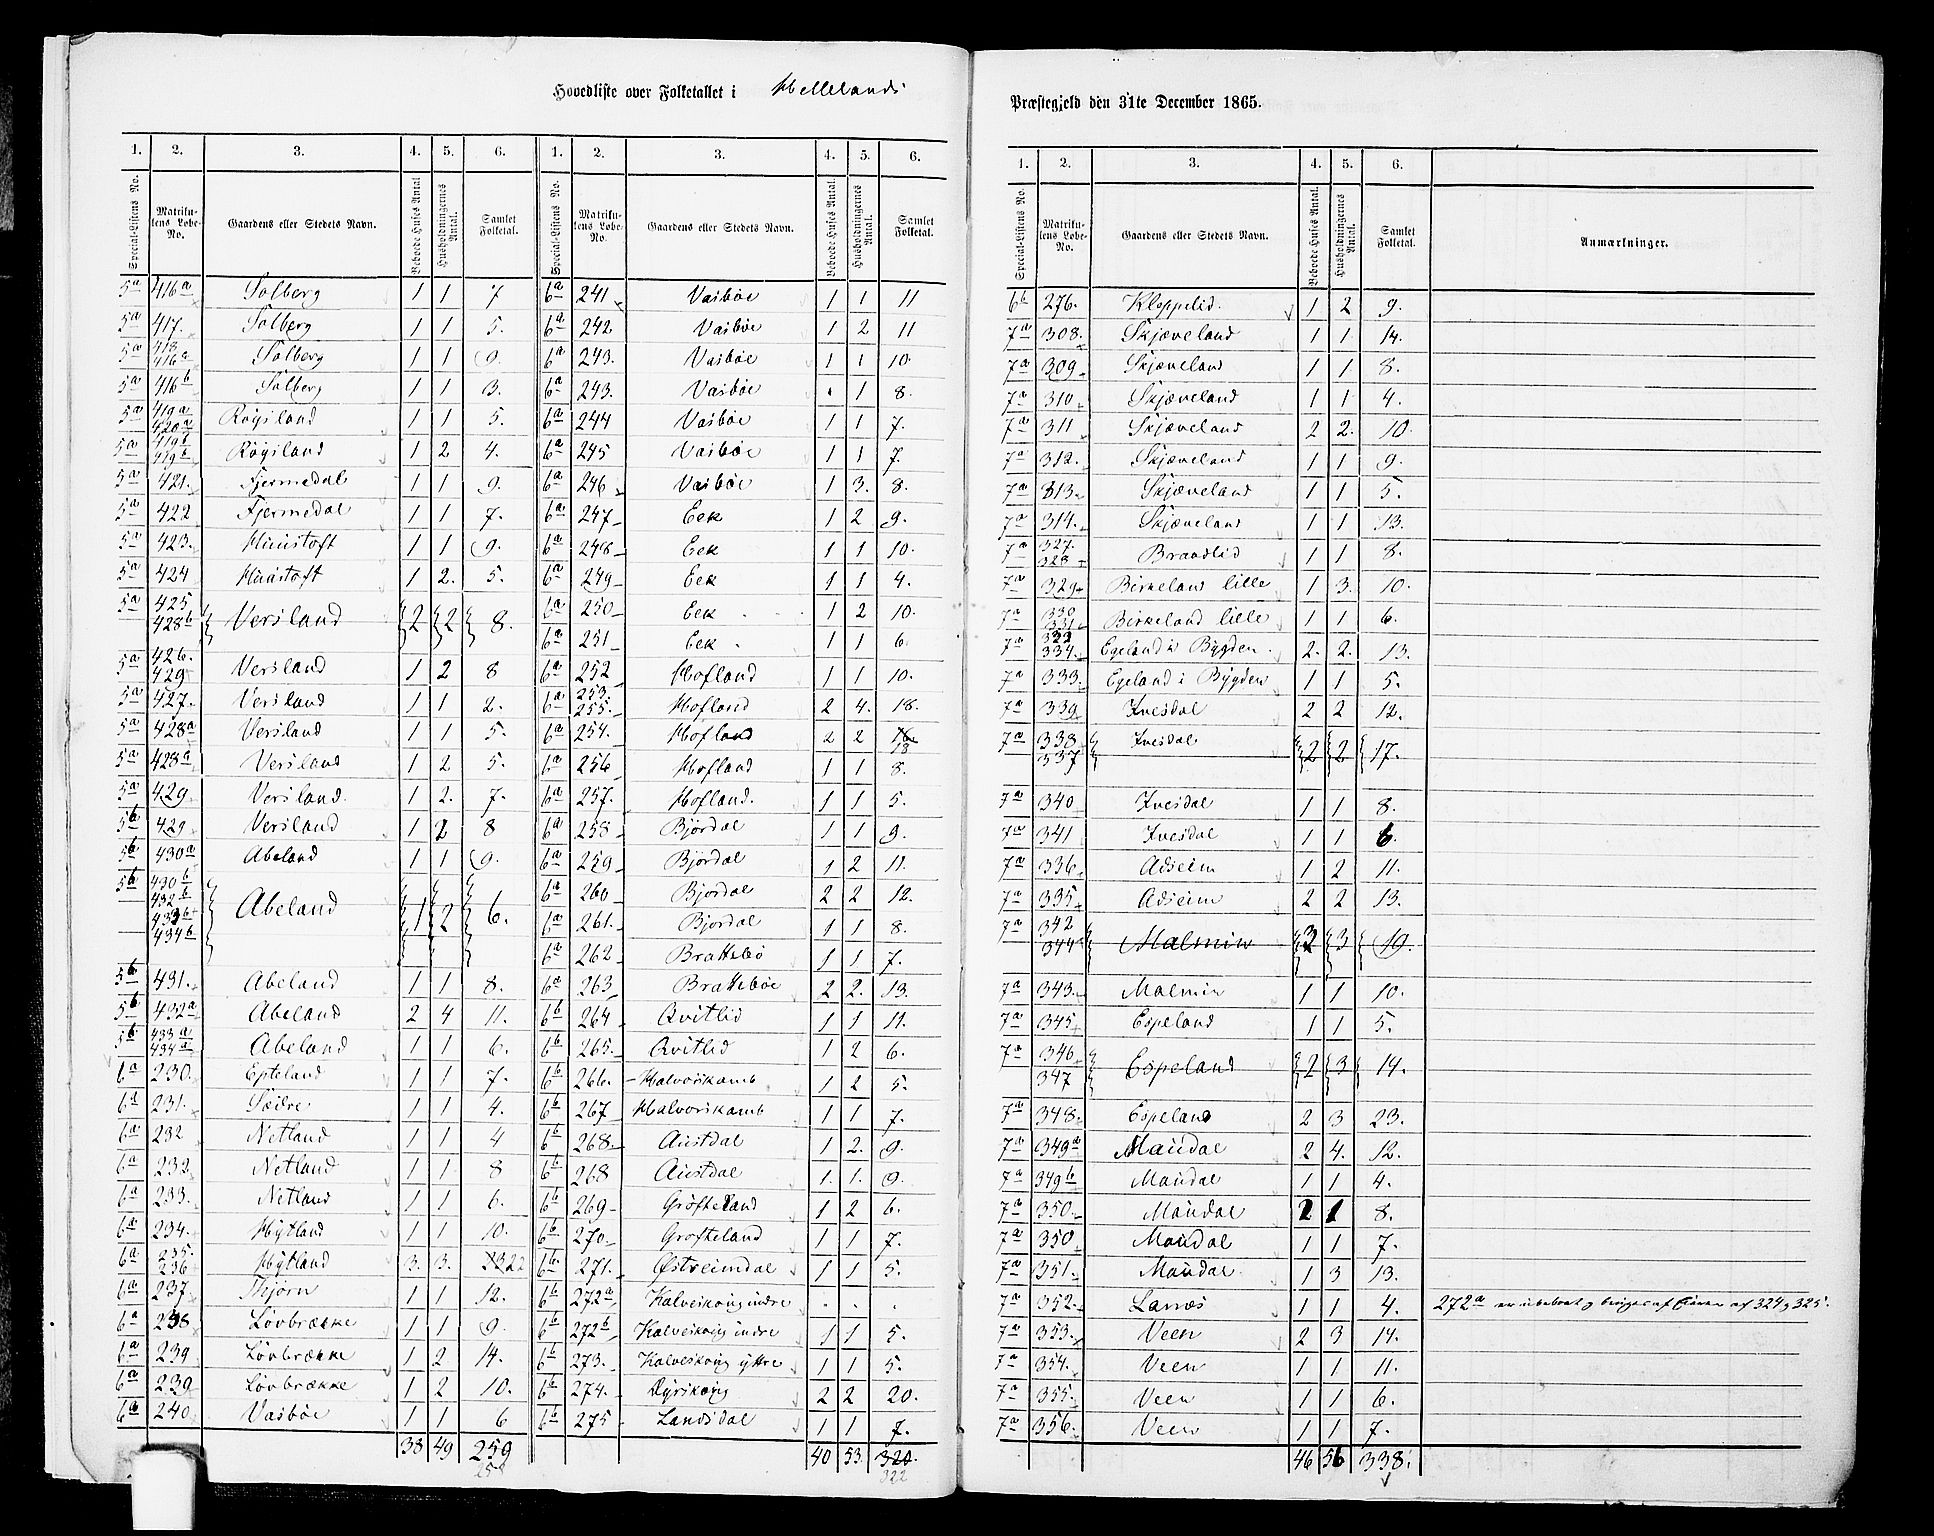 Hovedliste over Folketallet i Hellelands
1. 2. 3. 4. 5. 6. 1. 2. 3. 4. 5. 6.
Special-Listens No. Matriku-lens Løbe-No. Gaardens eller Stedets Navn. Beboede Huses Antal Husholdningernes Antal. Samlet Folketal. Special-Listens No. Matriku-lens Løbe-No. Gaardens eller Stedets Navn. Beboede Huses Antal. Husholdningernes Antal. Samlet Folketal.
5a 416a Sølberg 1 1 7 6a 241 Vasbøe 1 1 11
5a 417. Sølberg 1 1 5. 6a 242. Vasbøe 1 2 11
5a 418 416a Sølberg 1 1 9. 6a 243. Vasbøe 1 1 10.
5a 416b Sølberg 1 1 3. 6a 243. Vasbøe • 1 8.
5a 419a 420a Røgsland 1 1 5. 6a 244 Vasbøe 1 1 7.
5a 419b Røgsland 1 2 4. 6a 245 Vasbøe 1 1 7.
5a 421. Fjermedal 1 1 9. 6a 246 Vasbøe 1 3. 8.
5a 422 Fjermedal 1 1 7. 6a 247 Eek 1 2 9.
5a 423. Huustoft 1 1 9. 6a 248 Eek 1 1 10.
5a 424 Huustoft 1 2. 5. 6a 249 Eek 1 1 4.
5a 425 428b Versland 2 2 8. 6a 250 Eek 1 2 10.
6a 251 Eek 1 1 6.
5a 426. 429 Versland 1 2 8 6a 252 Hofland 1 1 10.
5a 427. Versland 1 1 2. 6a 253. 255. Hofland 2 4. 18.
5a 428a Versland 1 1 5. 6a 254. Hofland 2 2 18
5a 428a Versland 1 2 5. 6a 256 Hofland 1 1 8.
5a 429. Versland. 1 2. 7. 6a 257. Hofland. 1 1 5.
5b 429 Versland 1 2 8 6a 258 Bjørdal 1 1 9.
5b 430a Abeland 1 1 9. 6a 259 Bjørdal 1 2 11.
5b 430b 432b 433b 434b Abeland 1 2 6. 6a 260 Bjordal 2 2 12.
6a 261. Bjordal 1 1 8.
6a 262 Brattebø 1 1 7.
5b 431. Abeland 1 1 8. 6a 263 Brattebøe 2 2. 13.
5b 432a Abeland 2 4 11. 6b 264 Qvitlid 1 1 11.
5b 433a 434a Abeland 1 1 6. 6b 265. Qvitlid 1 2 6.
6a 230. Epteland 1 1 7. 6b 266. Halvorskamb 1 2 5.
6a 231. Sædre 1 1 4. 6b 267 Halvorskamb 1 1 7.
6a 232 Netland 1 1 4 6b 268 Austdal 1 2. 9.
6a 232. Netland 1 1 8 6b 268 Austdal 1. 1. 9.
6a 233. Netland 1 1 6. 6b 269 Grøfteland 1 2 6.
6a 234. Hytland 1 1 10. 6b 270. Grofteland 1 1 7.
6a 235. 236 Hytland 3. 3. 22 6b. 271. Østreimdal 1 1 5.
6a 237 Thjørn 1 1 12. 6b 272a Kalveskovg indre . . .
6a 238 Løvbrække 1 1 9. 6b 272b Kalveskovg indre 1 1 5.
6a 239 Løvbrække 1 2 14. 6b 273. Kalveskovg ÿttre 1 1 5.
6a 239 Løvbrække 1 2 10. 6b 274. Dyrskovg 2 2 20.
6a 240 Vasbøe 1 1 6 6b 275 Landsdal 1 1 7.
38 49 259 40 53. 320.
322
Præstegjeld den 31te December 1865.
1. 2. 3. 4. 5. 6.
Special-Listens No. Matriku-lens Løbe-No. Gaardens eller Stedets Navn. Beboede Huses Antal. Husholdningernes Antal. Samlet Folketal. Anmærkninger.
6b 276. Kloppelid 1 2 9.
7a 308. Skjæveland 1 1 14.
7a 309 Skjæveland 1 1 8.
7a 310 Skjæveland 1 1 4.
7a 311 Skjæveland 2 2. 10.
7a 312. Skjæveland 1 1 9.
7a 313 Skjæveland 1 1 5.
7a 314. Skjæveland 1 1 13.
7a 327. 328 Braadlid 1 1 8.
7a 329 Birkeland lille 1 3. 10.
7a 330 331 Birkeland lille 1 1 6.
7a 332 334. Egeland i Bygden. 2. 2. 13.
7a 333. Egeland i Bygden 1 1 5.
7a 339 Ivesdal 2 2 12.
7a 338 337 Ivesdal 2 2 17.
7a 340 Ivesdal 1 1 8.
7a 341 Ivesdal 1 1 6.
7a 336 Adseim 1 2 11.
7a 335 Adseim 2 2 13.
7a 342 344 Malmin 3 3 19.
7a 343. Malmin 1 1 10.
7a 345 Espeland 1 1 5.
7a 346 347 Espeland 2 3 14.
7a 348. Espeland 2 3 23.
7a 349a Maudal 2 4. 12.
7a 349b Maudal 1 1 4.
7a 350. Maudal 2 1 8.
7a 350 Maudal 1 1 7.
7a 351. Maudal 1 3 13.
7a 352. Lanæs 1 1 4. 272a er ubeboet og bruges af Eieren af 324 og 325.
7a 353. Veen 2 3 14.
7a 354. Veen 1 1 11.
7a 355. Veen 1 1 6.
7a 356. Veen 1 1 7.
46 56 338.